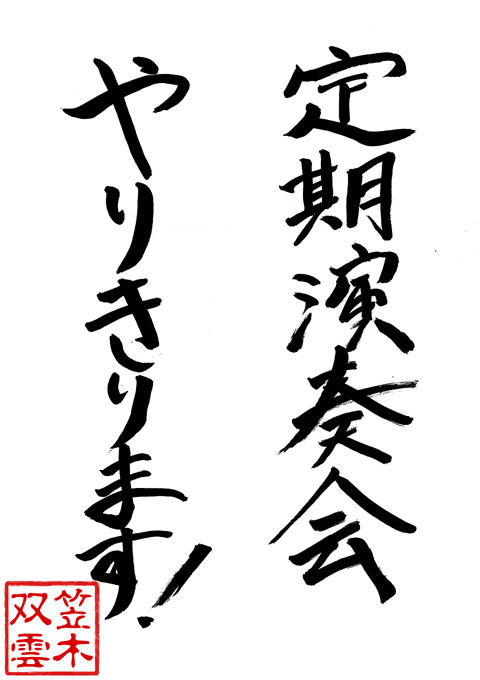 定期演奏会
やりきります!
笠木
双雲